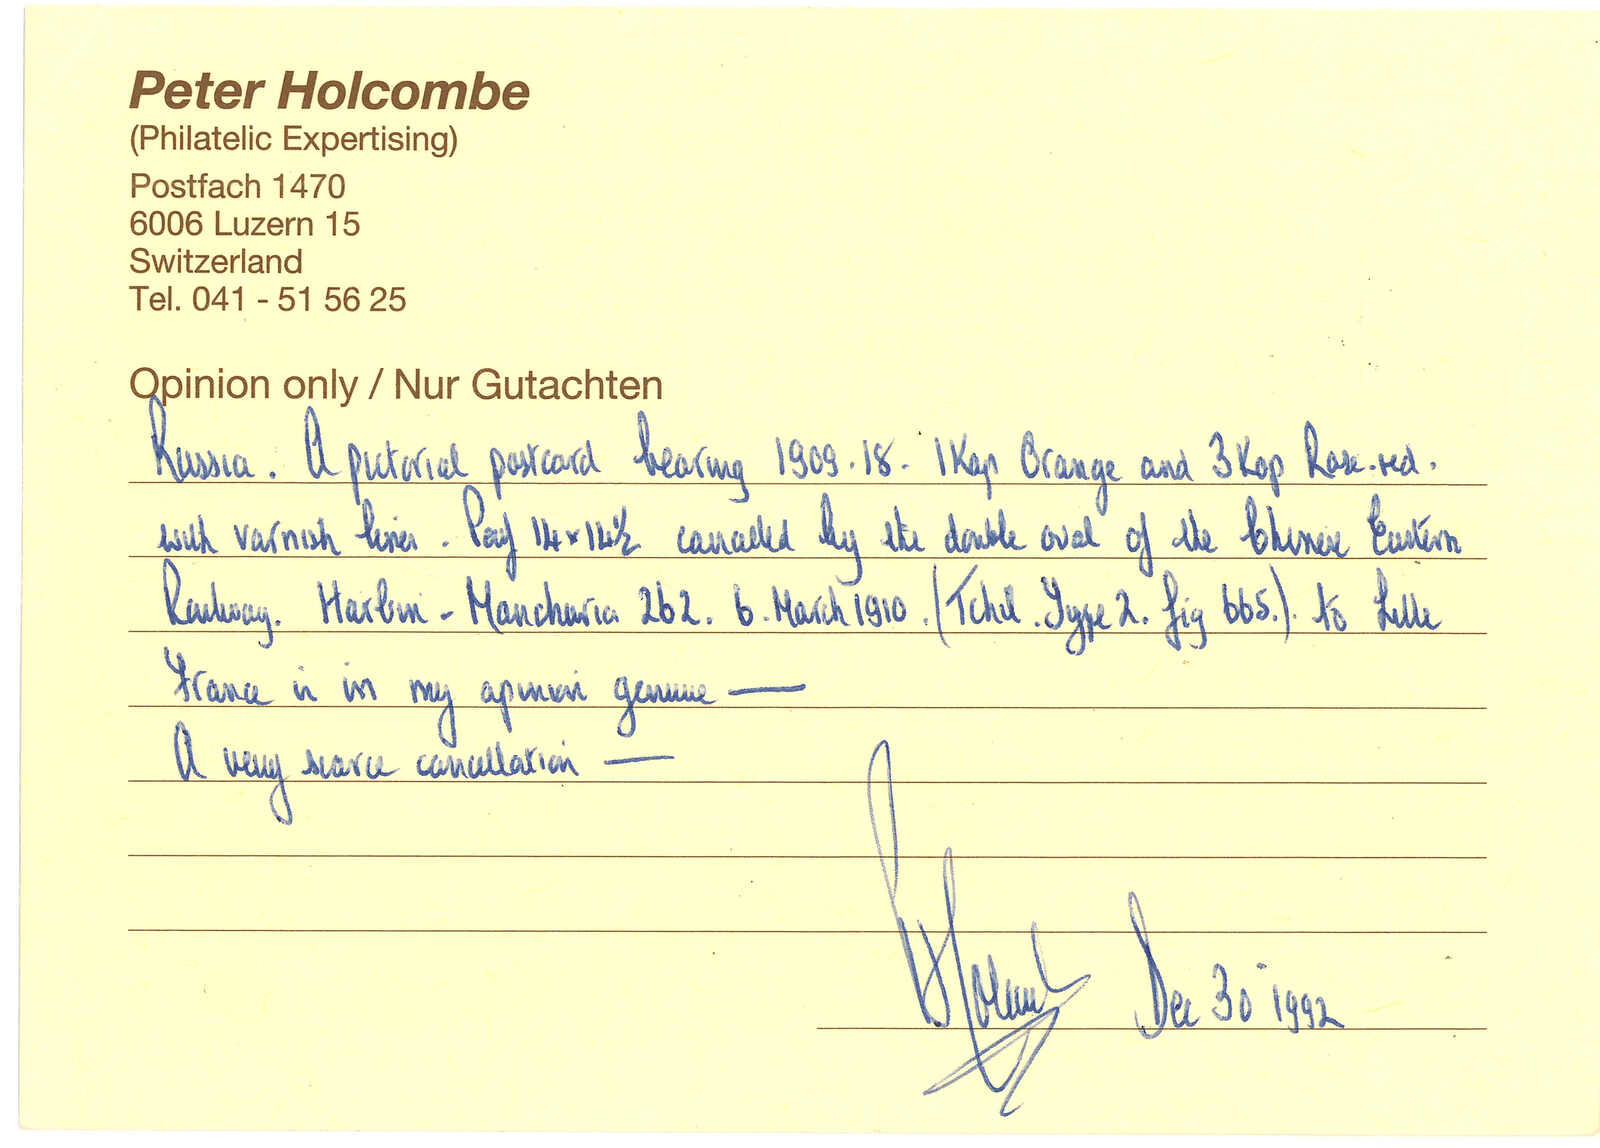 Peter Holcombe
(Philatelic Expertising)
Postfach 1470
6006 Luzern 15
Switzerland
Tel. 041 - 51 56 25
Opinion only / Nur Gutachten
Russia. A pictorial postcard bearing 1909.18. 1Kop Orange and 3Kop Rose.red.
with varnish lines. Perf 14x14½ cancelled by the double oval of the Chinese Eastern
Railway. Harbin - Manchuria 262. 6. March 1910. (Tchil. Type 2. fig 665.). to Lille
France is in my opinion genuine —
A very scarce cancellation —
Dec 30 1992